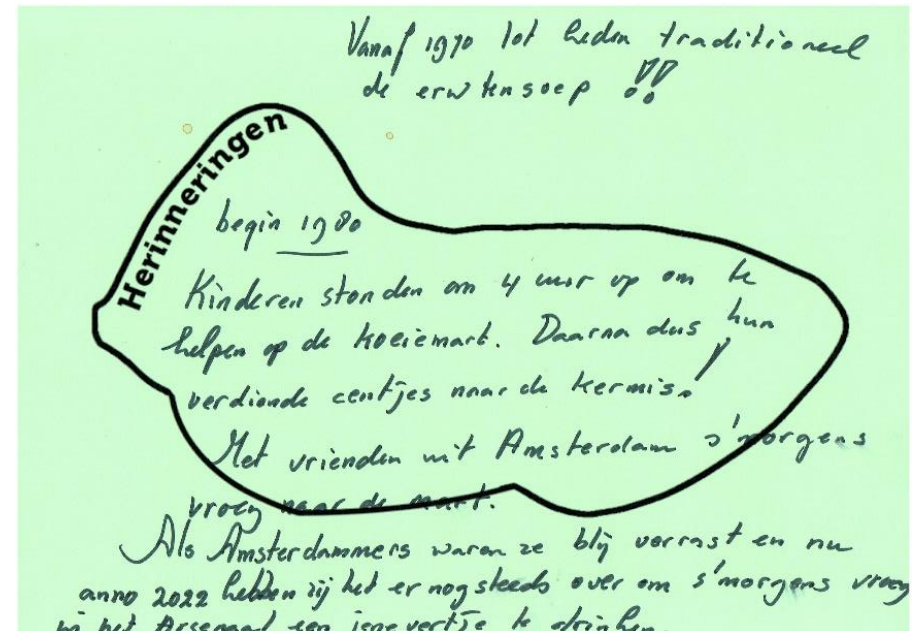 Vanaf 1970 tot heden traditioneel
de erwtensoep !!
Herinneringen
begin 1980
Kinderen stonden om 4 uur op om te
helpen op de koeiemart. Daarna dus hun
verdiende centjes naar de kermis!
Met vrienden uit Amsterdam s'morgens
vroeg naar de mart.
Als Amsterdammers waren ze blij verrast en nu
anno 2022 hebben zij het er nog steeds over om s'morgens vroeg
in het Arsenaal een jenevertje te drinken.